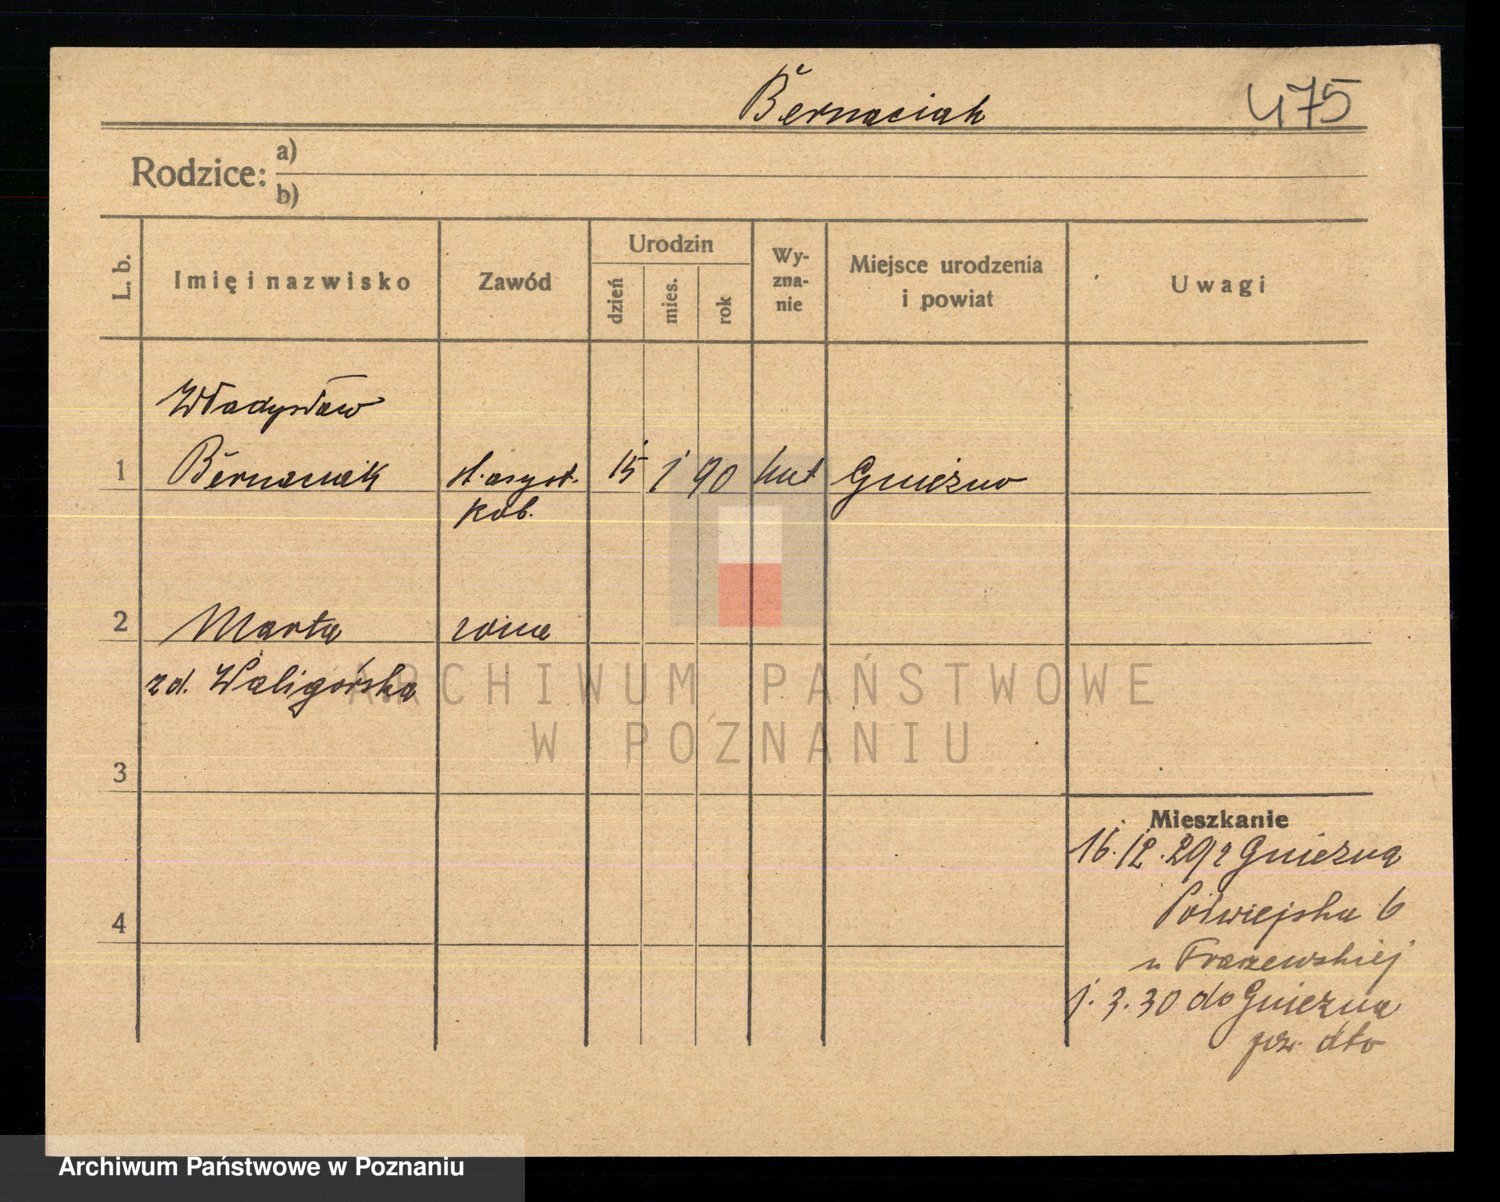 Bernaciak 475
Rodzice: a)
b)
L. b. Imię i nazwisko Zawód Urodzin dzień mies. rok Wy-zna-nie Miejsce urodzenia i powiat Uwagi
Władysław
1 Bernaciak st. asyst. 15 1 90 kat Gniezno
kol.
2 Marta żona
zd. Waligórska
ARCHIWUM PAŃSTWOWE
W POZNANIU
3
Mieszkanie
16.12.29 z Gniezna
4 Półwiejska 6
u
1.3.30 do Gniezna
dto
Archiwum Państwowe w Poznaniu